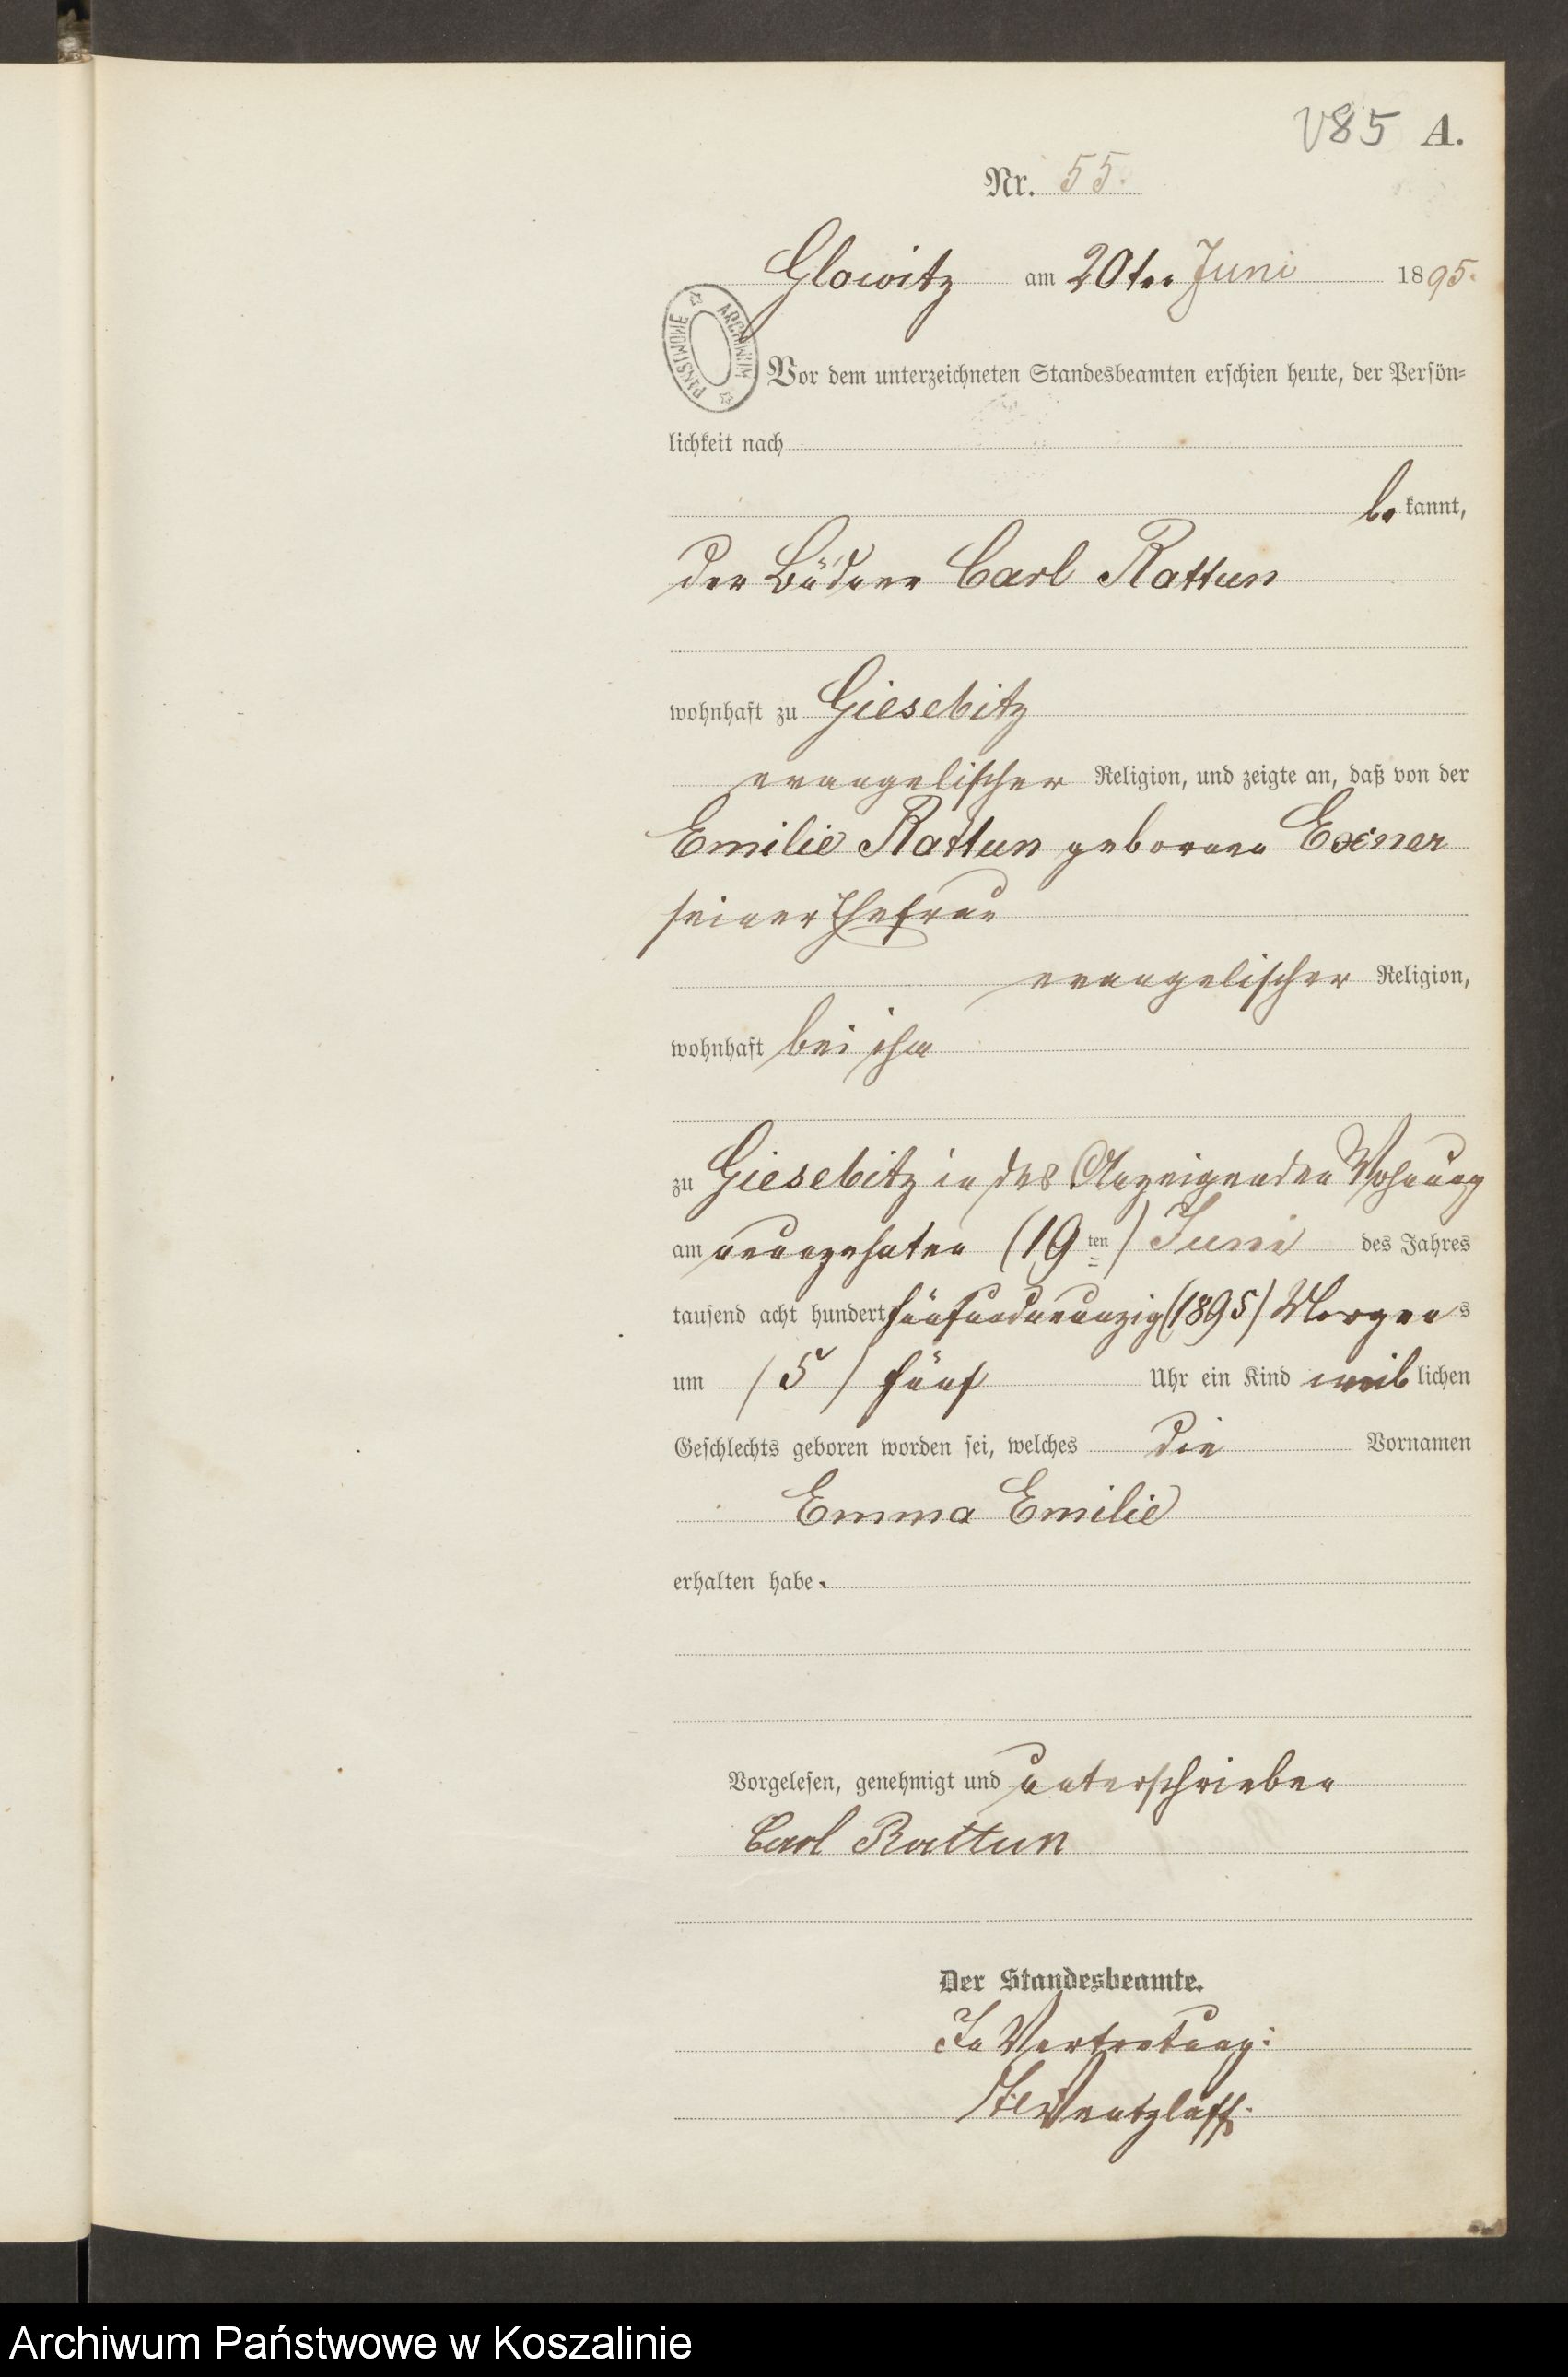 V85 A.
Nr. 55.
Glowitz am 20ten Juni 1895.
ARCHIWUM PAŃSTWOWE
Vor dem unterzeichneten Standesbeamten erschien heute, der Persön-
lichkeit nach
be kannt,
der Büdner Carl Rattun
wohnhaft zu Giesebitz
evangelischer Religion, und zeigte an, daß von der
Emilie Rattun geborenen Exner
seiner Ehefrau
evangelischer Religion,
wohnhaft bei ihm
zu Giesebitz in des Anzeigenden Wohnung
am neunzehnten (19ten) Juni des Jahres
tausend acht hundert fünfundneunzig (1895) Morgens
um (5) fünf Uhr ein Kind weiblichen
Geschlechts geboren worden sei, welches die Vornamen
Emma Emilie
erhalten habe.
Vorgelesen, genehmigt und unterschrieben
Carl Rattun
Der Standesbeamte.
In Vertretung:
Wentzlaff.
Archiwum Państwowe w Koszalinie